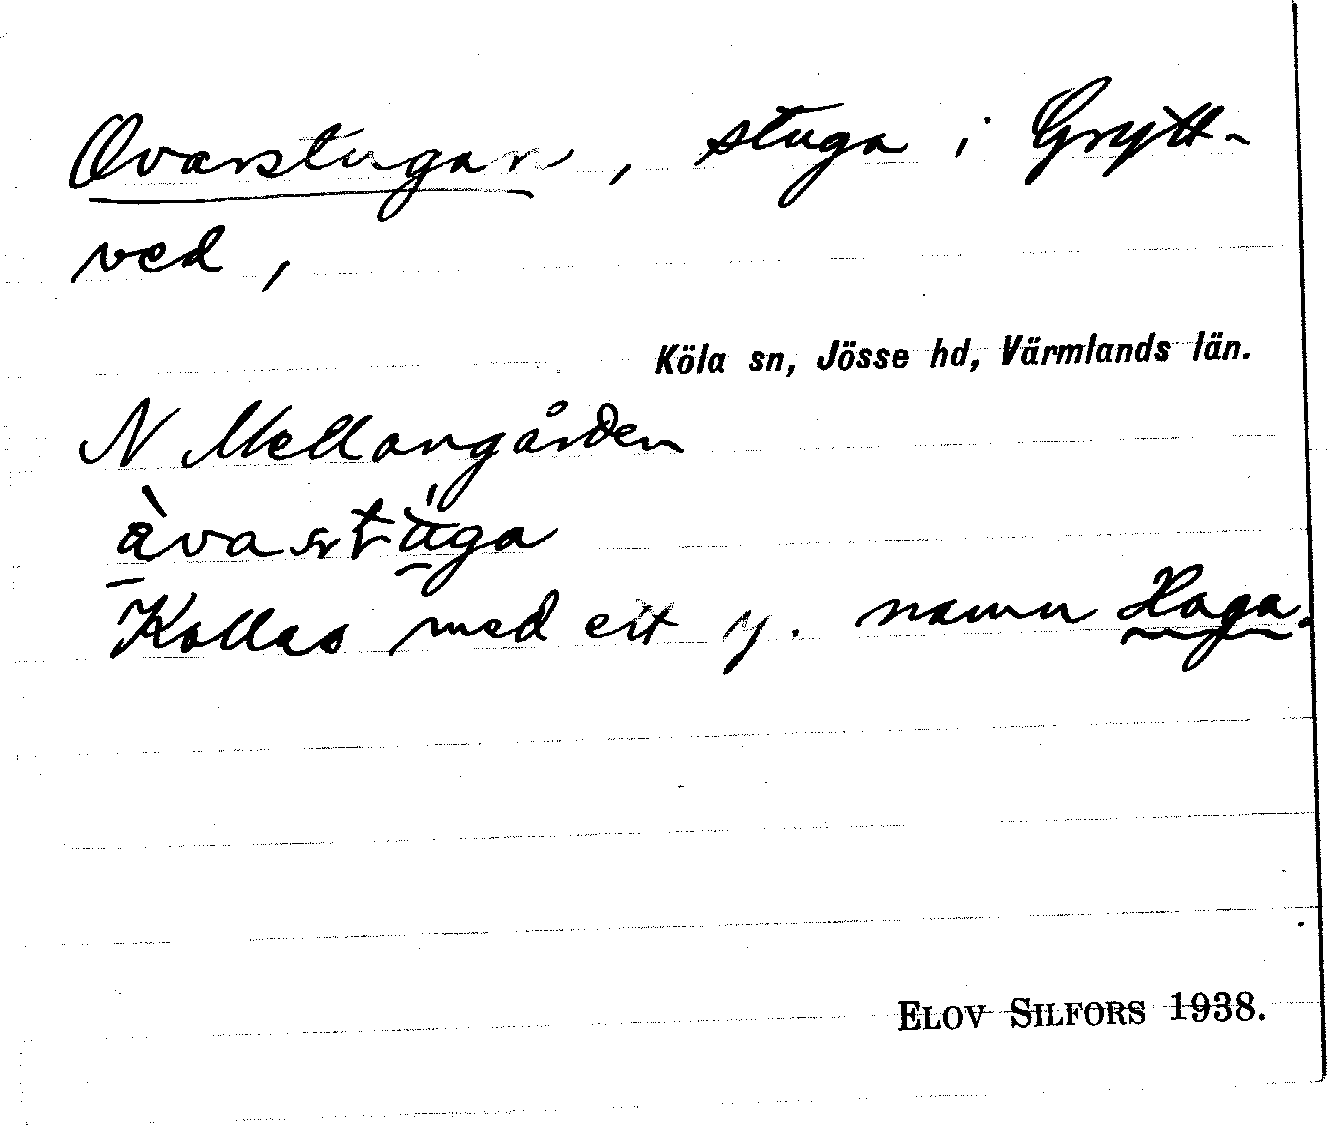 Ovarstugan, stuga i Grytt-
ved,
Köla sn, Jösse hd, Värmlands län.
N Mellangården
àvastuga
Kallas med ett y. namn Haga.
ELOV SILFORS 1938.